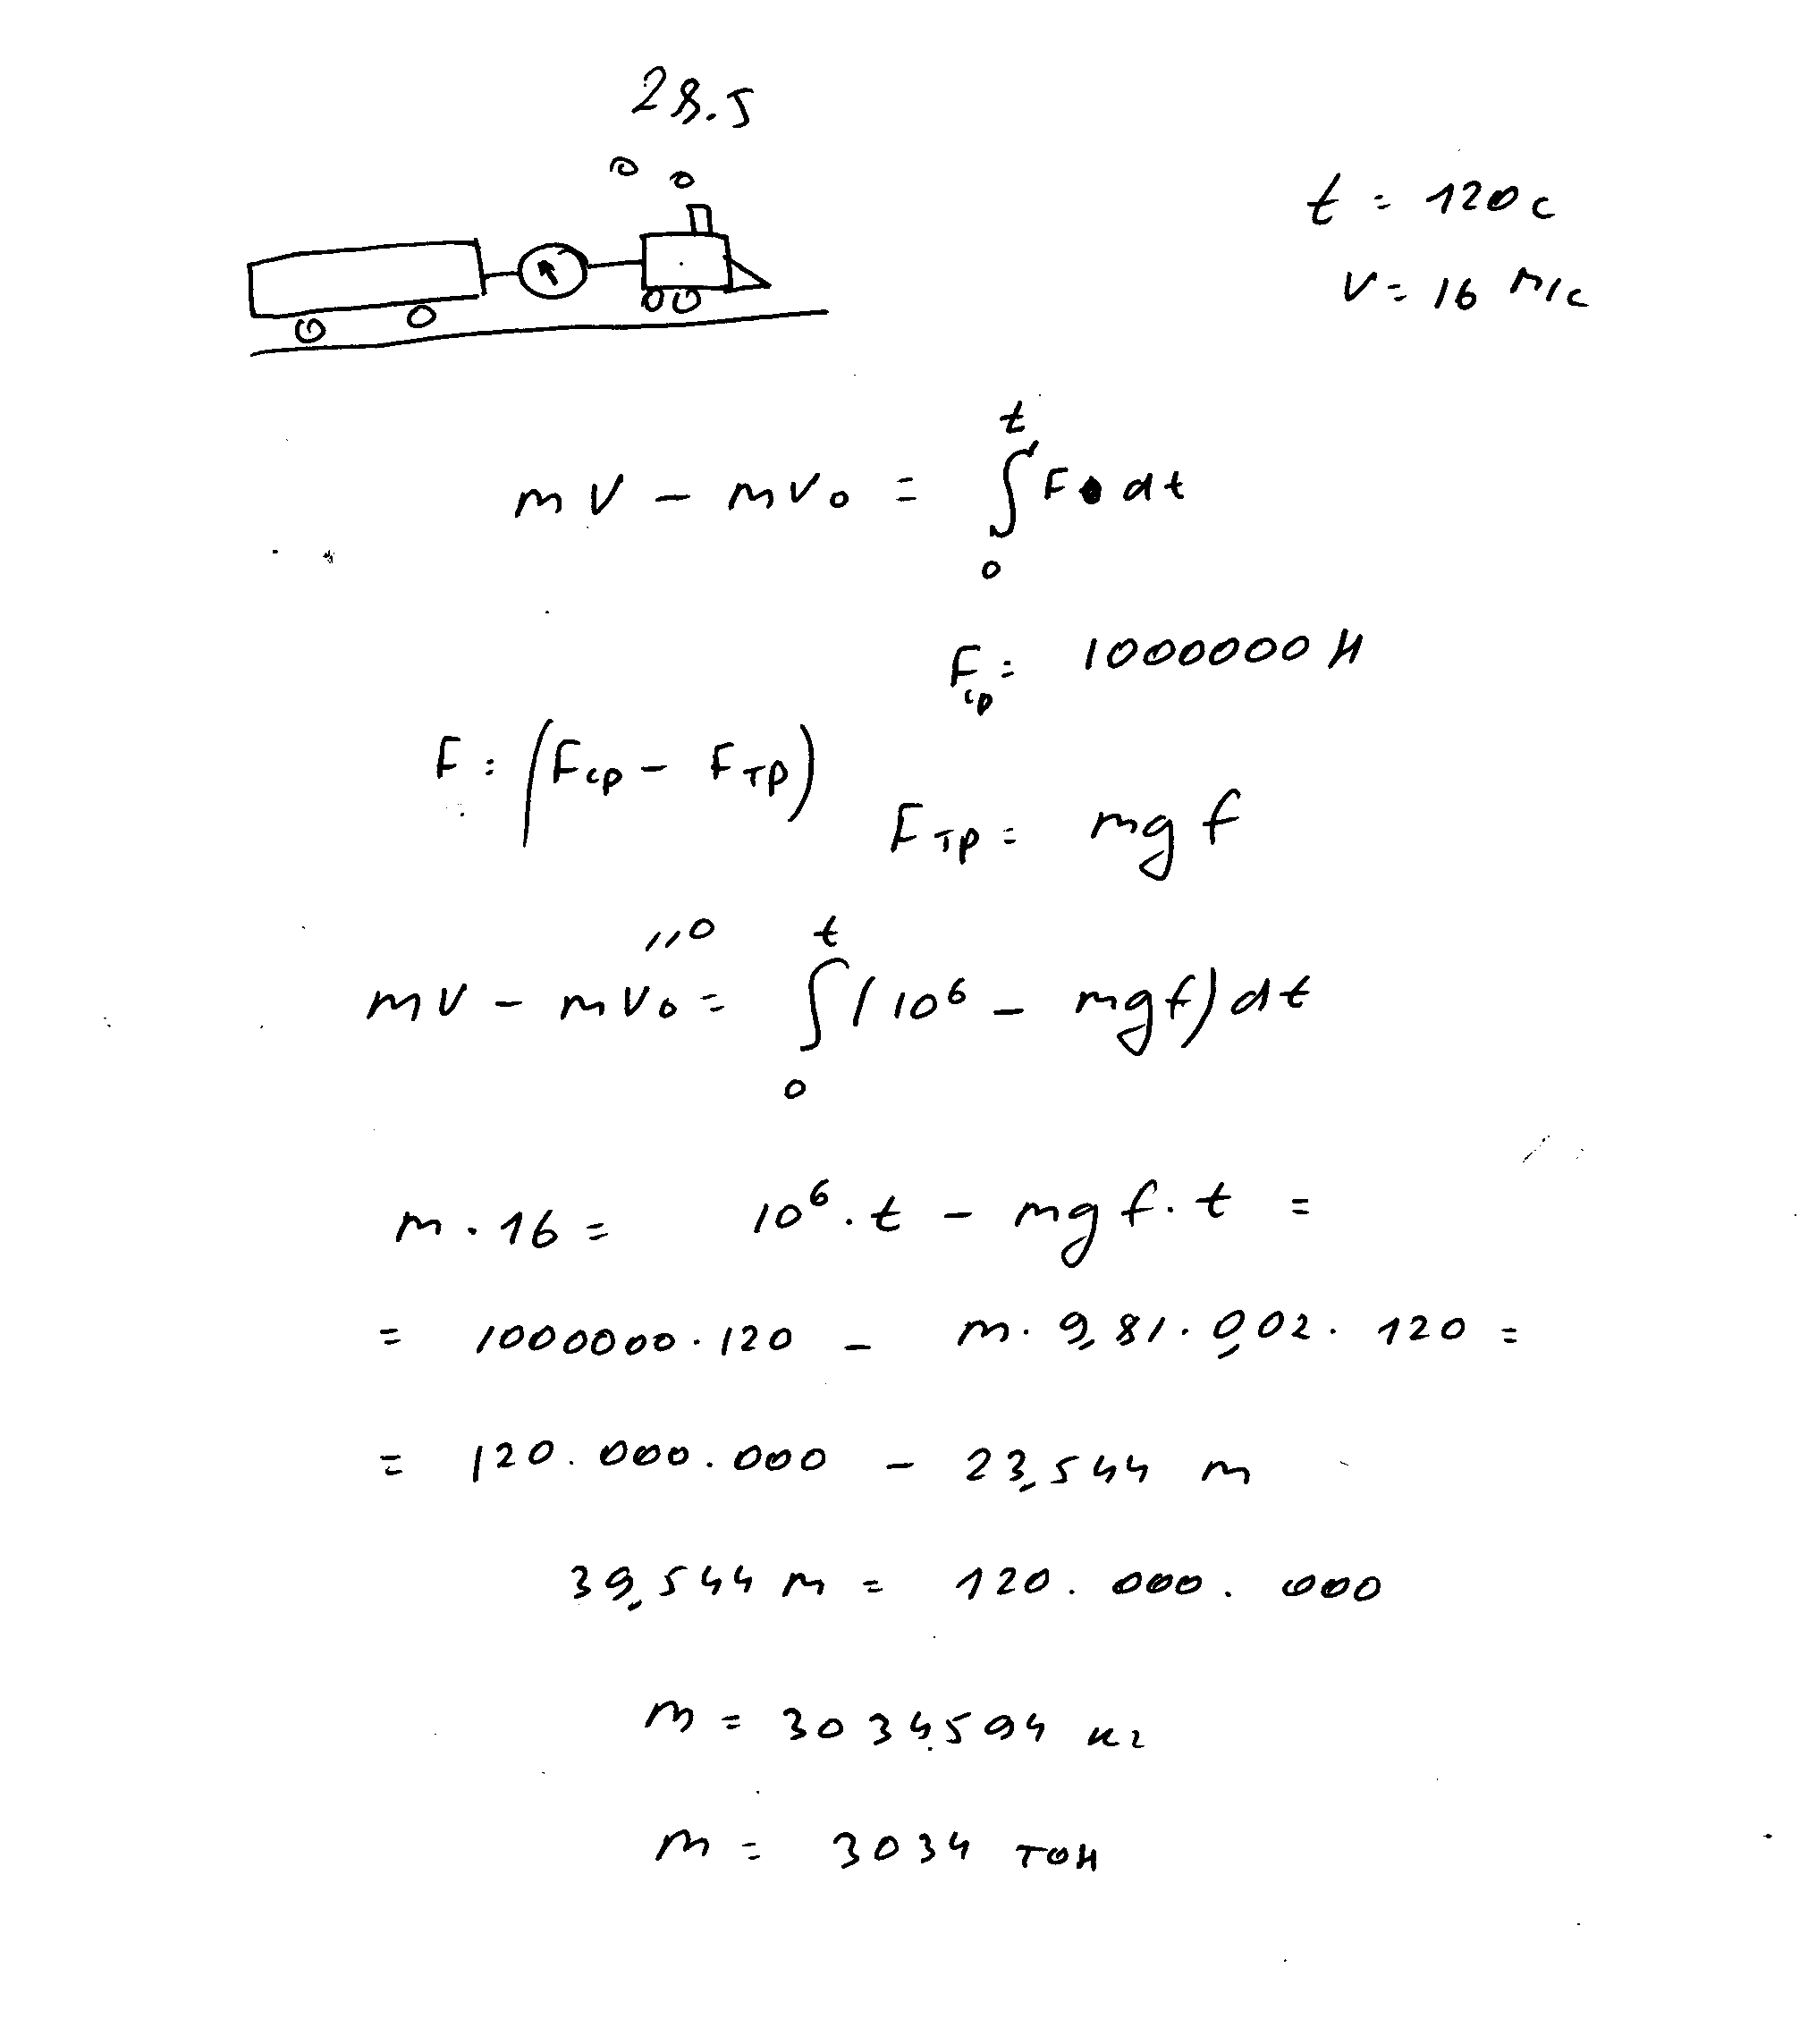 28.5
t = 120 с
v = 16 м/с
mv - mv₀ = ∫₀ᵗ F dt
Fср = 1000000 Н
F = (Fср - Fтр)
Fтр = mgf
"0
mv - mv₀ = ∫₀ᵗ (10⁶ - mgf) dt
m · 16 = 10⁶ · t - mgf · t =
= 1000000 · 120 - m · 9,81 · 0,02 · 120 =
= 120.000.000 - 23,544 m
39,544 m = 120.000.000
m = 3034594 кг
m = 3034 тон